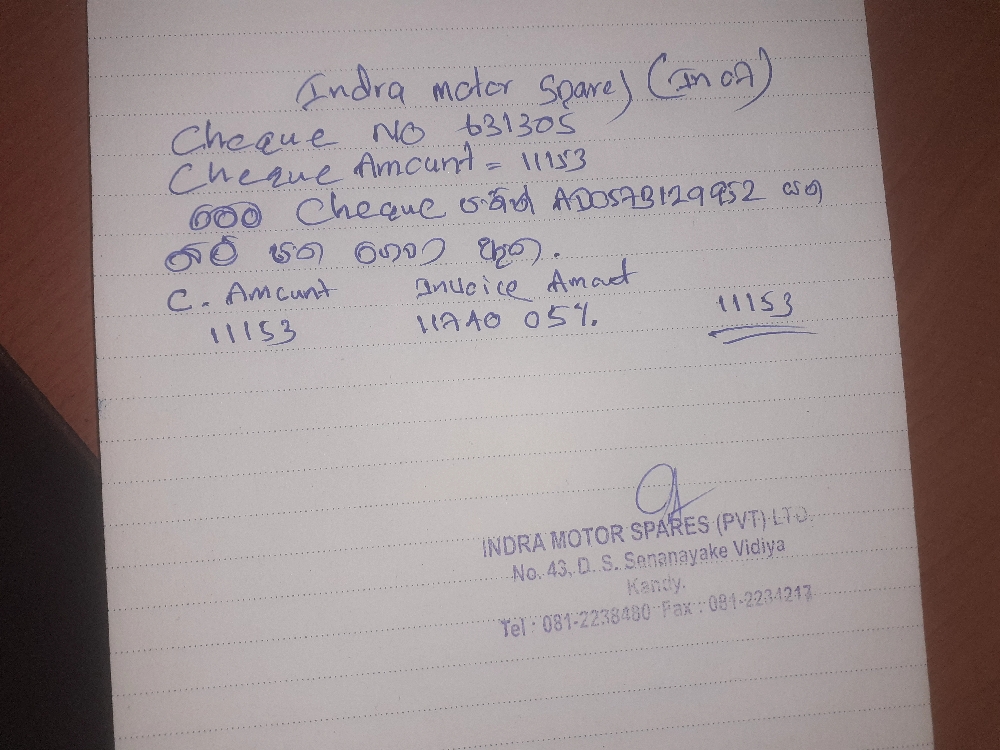 Indra motor Spares (In 07)
Cheque NO 631305
Cheque Amount = 11153
මෙම Cheque පතින් AD057B129952 යන
බිල් පත ගෙවා ඇත.
C. Amount Invoice Amout
11153 11740 05%. 11153
INDRA MOTOR SPARES (PVT) LTD.
No. 43, D. S. Senanayake Vidiya
Kandy.
Tel : 081-2238480 Fax : 081-2234217